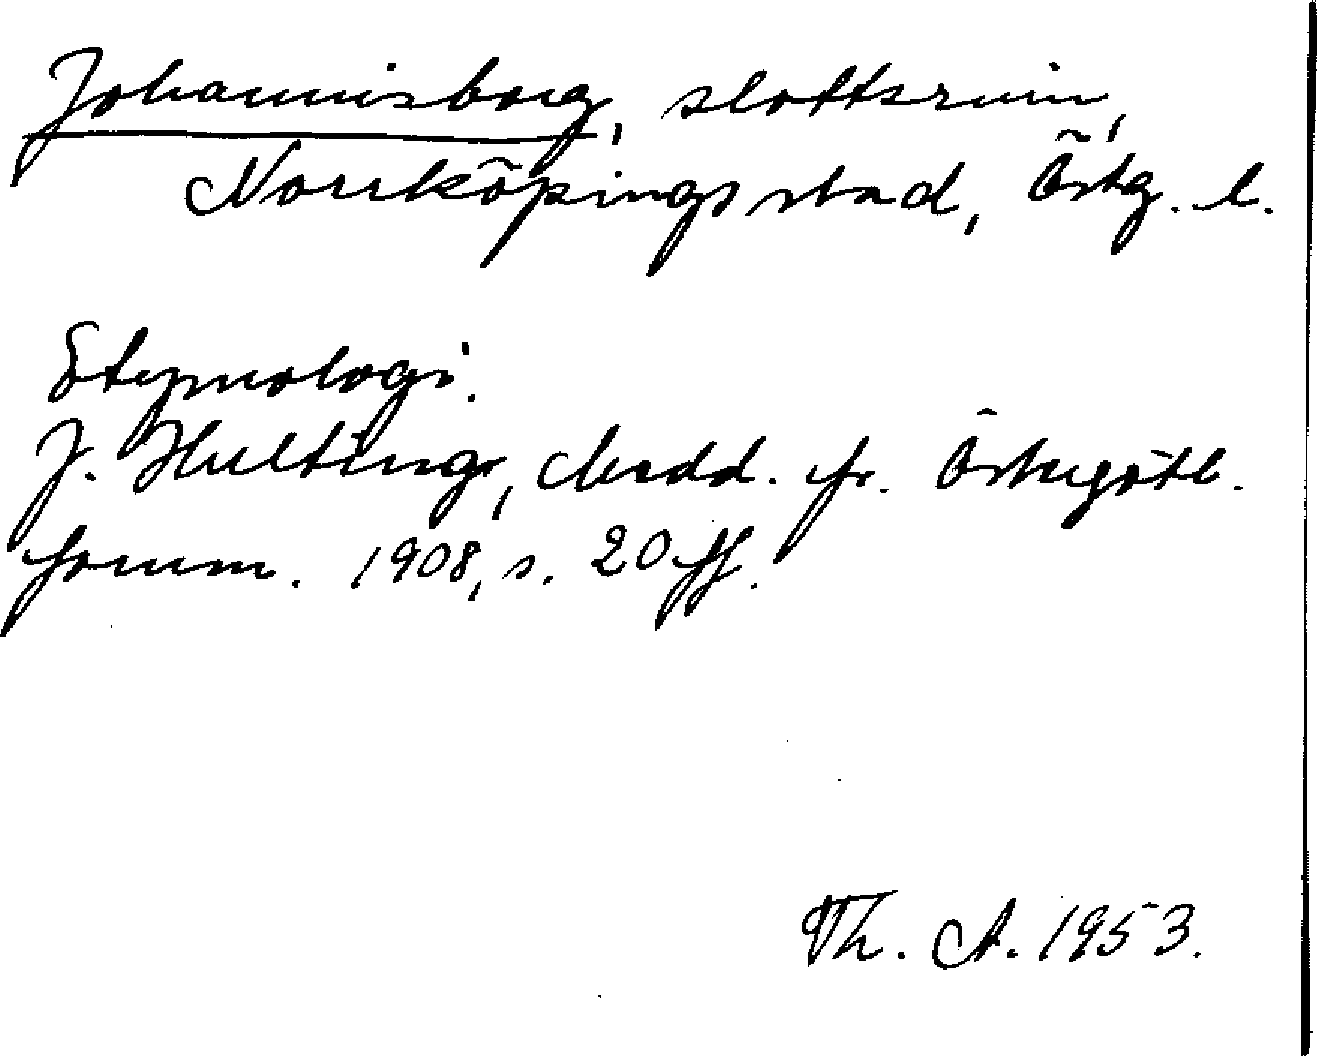 Johannisborg, slottsruin,
Norrköpings stad, Östg. l.
Etymologi.
J. Hulting, Medd. fr. Östergötl.
fornm. 1908, s. 20 ff.
Th. A. 1953.